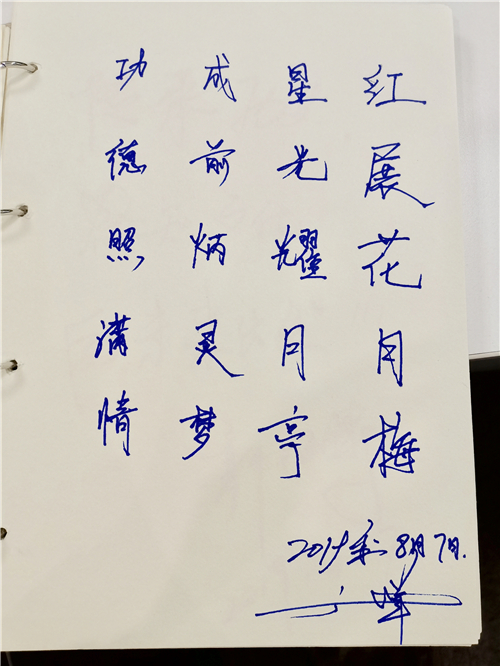 红展花月梅
星光耀月亭
成前炳灵梦
功德照满情
2019年8月7日.